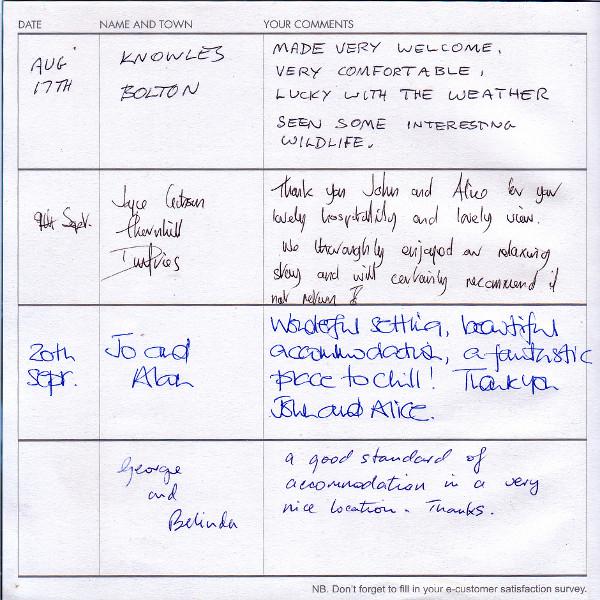 DATE NAME AND TOWN YOUR COMMENTS
AUG
17TH
KNOWLES
BOLTON
MADE VERY WELCOME,
VERY COMFORTABLE,
LUCKY WITH THE WEATHER
SEEN SOME INTERESTING
WILDLIFE.
9th Sept.
Joyce
Thornhill
Dumfries
Thank you John and Alice for your
lovely hospitality and lovely view.
We thoroughly enjoyed our relaxing
stay and will certainly recommend if
not return
20th
Sept.
Jo and
Alan
Wonderful setting, beautiful
accommodation, a fantastic
place to chill! Thank you
John and Alice.
George
and
Belinda
a good standard of
accommodation in a very
nice location. Thanks.
NB. Don't forget to fill in your e-customer satisfaction survey.